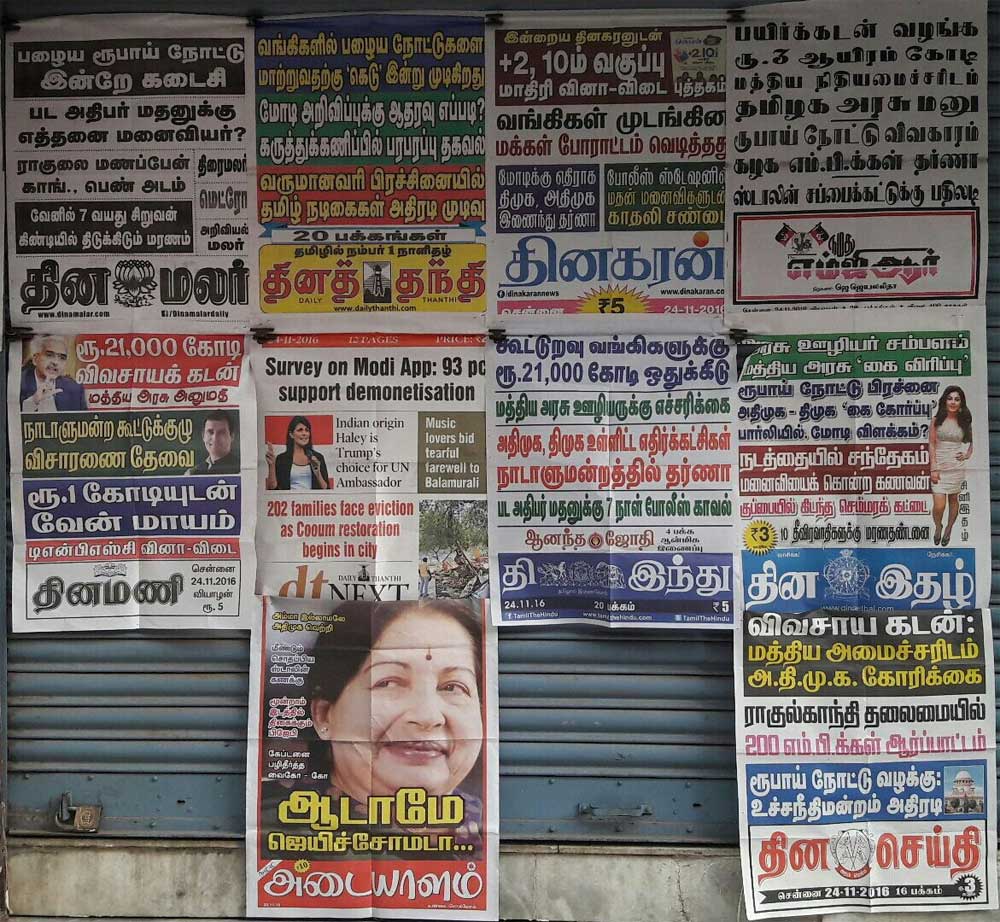 பழைய ரூபாய் நோட்டு
இன்றே கடைசி
பட அதிபர் மதனுக்கு
எத்தனை மனைவியர்?
ராகுலை மணப்பேன்
காங்., பெண் அடம்
வேனில் 7 வயது சிறுவன்
கிண்டியில் திடுக்கிடும் மரணம்
திரைமலர்
மெட்ரோ
அறிவியல்
மலர்
தின மலர்
www.dinamalar.com
/Dinamalardaily
வங்கிகளில் பழைய நோட்டுகளை
மாற்றுவதற்கு 'கெடு' இன்று முடிகிறது
மோடி அறிவிப்புக்கு ஆதரவு எப்படி?
கருத்துக்கணிப்பில் பரபரப்பு தகவல்
வருமானவரி பிரச்சினையில்
தமிழ் நடிகைகள் அதிரடி முடிவு
20 பக்கங்கள்
தமிழில் நம்பர் 1 நாளிதழ்
தினத் தந்தி
DAILY THANTHI
www.dailythanthi.com
இன்றைய தினகரனுடன்
+2, 10ம் வகுப்பு
மாதிரி வினா-விடை புத்தகம்
வங்கிகள் முடங்கின
மக்கள் போராட்டம் வெடித்தது
மோடிக்கு எதிராக
திமுக, அதிமுக
இணைந்து தர்ணா
போலீஸ் ஸ்டேஷனில்
மதன் மனைவிகளுடன்
காதலி சண்டை
தினகரன்
/dinakarannews
www.dinakaran.com
சென்னை
₹5
24-11-2016
பயிர்க்கடன் வழங்க
ரூ.3 ஆயிரம் கோடி
மத்திய நிதியமைச்சரிடம்
தமிழக அரசு மனு
ரூபாய் நோட்டு விவகாரம்
கழக எம்.பி.க்கள் தர்ணா
ஸ்டாலின் சப்பைக்கட்டுக்கு பதிலடி
நமது
எம்ஜிஆர்
ஜெ ஜெயலலிதா
ரூ.21,000 கோடி
விவசாயக் கடன்
மத்திய அரசு அனுமதி
நாடாளுமன்ற கூட்டுக்குழு
விசாரணை தேவை
ரூ.1 கோடியுடன்
வேன் மாயம்
டிஎன்பிஎஸ்சி வினா-விடை
தினமணி
சென்னை
24.11.2016
வியாழன்
ரூ. 5
4-11-2016 12 PAGES PRICE: ₹
Survey on Modi App: 93 pc
support demonetisation
Indian origin
Haley is
Trump's
choice for UN
Ambassador
Music
lovers bid
tearful
farewell to
Balamurali
202 families face eviction
as Cooum restoration
begins in city
dt DAILY THANTHI
NEXT
கூட்டுறவு வங்கிகளுக்கு
ரூ.21,000 கோடி ஒதுக்கீடு
மத்திய அரசு ஊழியருக்கு எச்சரிக்கை
அதிமுக, திமுக உள்ளிட்ட எதிர்க்கட்சிகள்
நாடாளுமன்றத்தில் தர்ணா
பட அதிபர் மதனுக்கு 7 நாள் போலீஸ் காவல்
ஆனந்த ஜோதி
4 பக்க
ஆன்மிக
இணைப்பு
தி இந்து
24.11.16 20 பக்கம் ₹5
/TamilTheHindu www.tamil.thehindu.com /TamilTheHindu
அரசு ஊழியர் சம்பளம்
மத்திய அரசு 'கை விரிப்பு'
ரூபாய் நோட்டு பிரச்னை
அதிமுக - திமுக 'கை கோர்ப்பு'
பார்லியில், மோடி விளக்கம்?
நடத்தையில் சந்தேகம்
மனைவியைக் கொன்ற கணவன்
குப்பையில் கிடந்த செம்மரக் கட்டை
₹3
10 தீவிரவாதிகளுக்கு மரணதண்டனை
சினிஇதழ்
தின இதழ்
www.dinaethal.com
அம்மா இல்லாமலே
அதிமுக வெற்றி
மீண்டும்
சொதப்பிய
ஸ்டாலின்
கணக்கு
மூன்றாம்
இடத்தில்
திகைக்கும்
பிஜேபி
கேப்டனை
பழிதீர்த்த
வைகோ - கோ
ஆடாமே
ஜெயிச்சோமடா...
₹10
அடையாளம்
விவசாய கடன்:
மத்திய அமைச்சரிடம்
அ.தி.மு.க. கோரிக்கை
ராகுல்காந்தி தலைமையில்
200 எம்.பி.க்கள் ஆர்ப்பாட்டம்
ரூபாய் நோட்டு வழக்கு:
உச்சநீதிமன்றம் அதிரடி
தின செய்தி
சென்னை 24-11-2016 16 பக்கம் ₹3